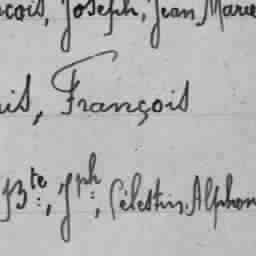 ncois, Joseph, Jean Marie
uis, François
Bte, Jph, Célestin, Alphon